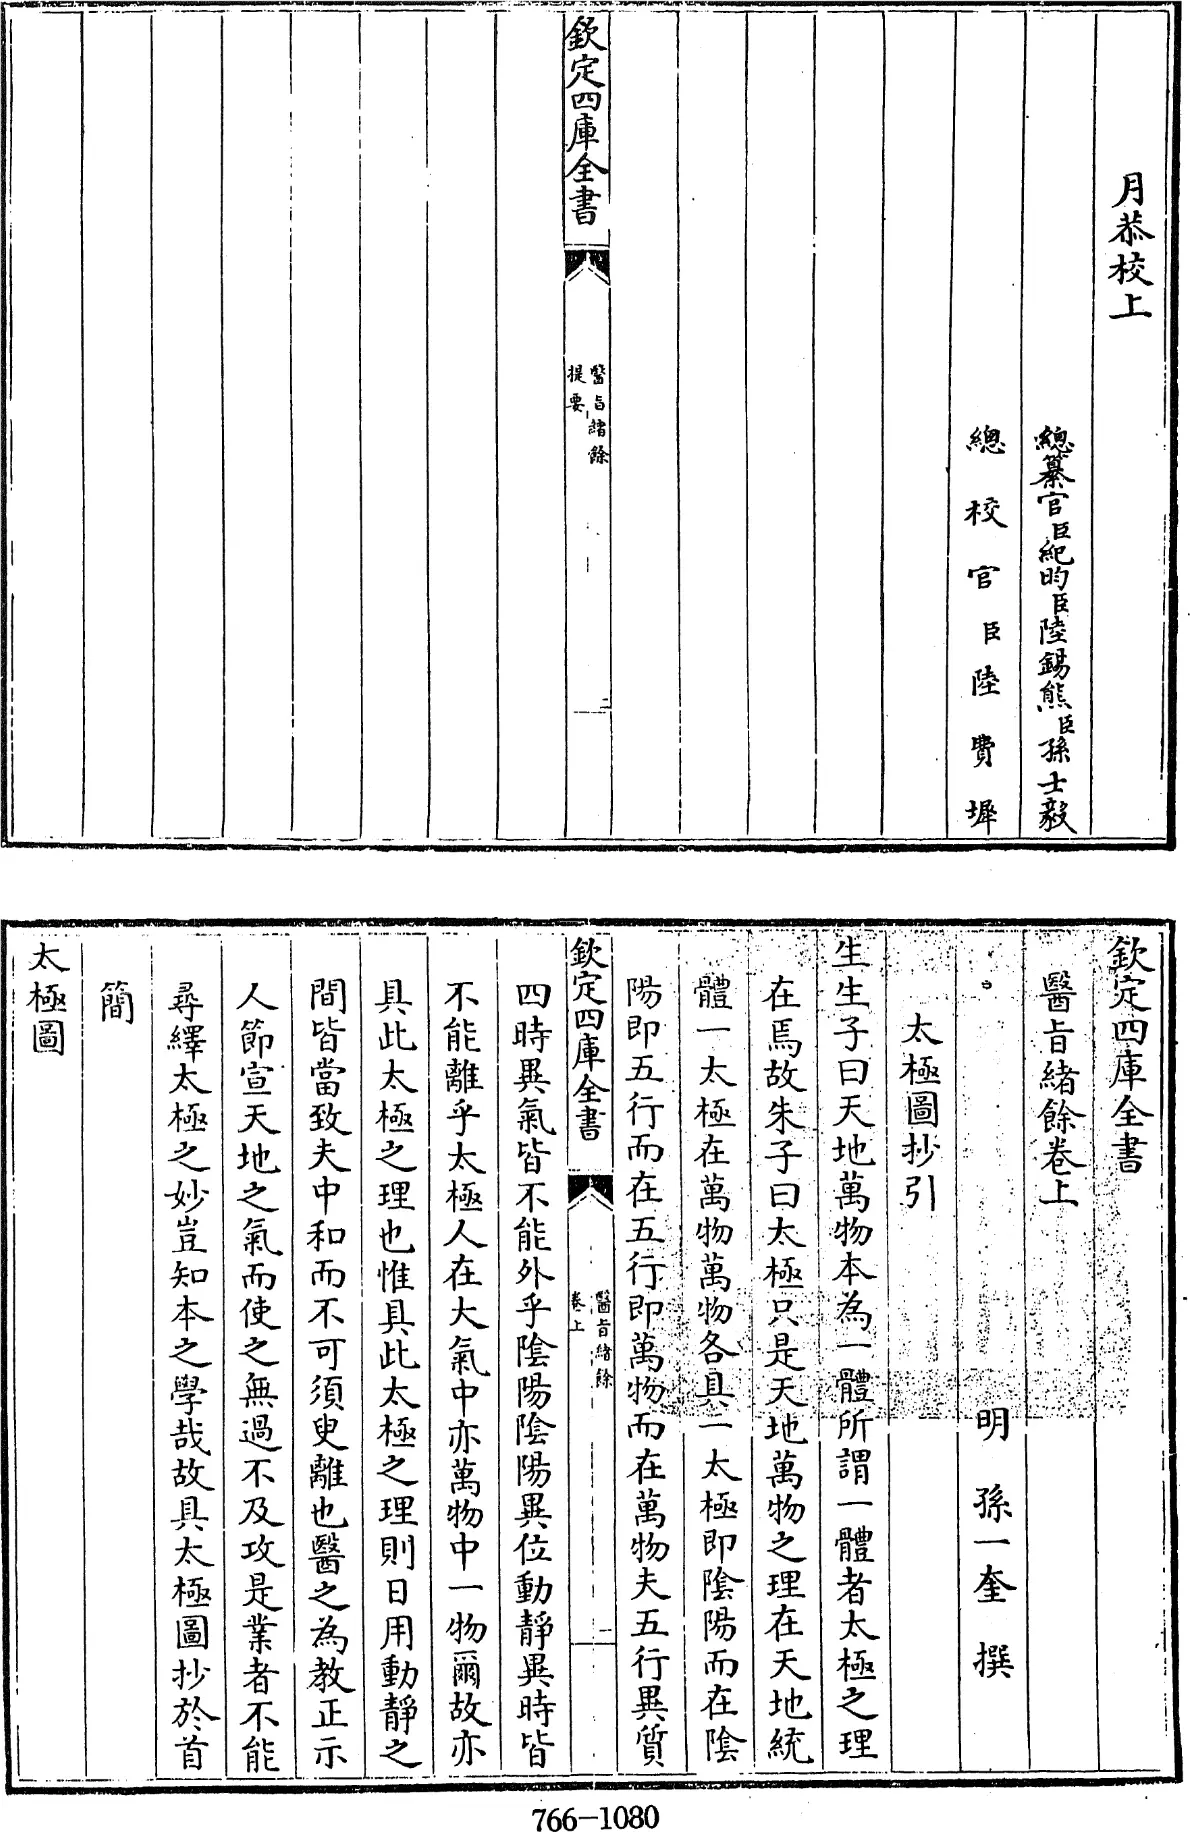 月恭校上
總纂官臣紀昀臣陸錫熊臣孫士毅
總校官臣陸費墀
欽定四庫全書
醫旨緒餘
提要
二
欽定四庫全書
醫旨緒餘卷上
明 孫一奎 撰
太極圖抄引
生生子曰天地萬物本為一體所謂一體者太極之理
在焉故朱子曰太極只是天地萬物之理在天地統
體一太極在萬物萬物各具一太極即陰陽而在陰
陽即五行而在五行即萬物而在萬物夫五行異質
欽定四庫全書
醫旨緒餘
卷上
一
四時異氣皆不能外乎陰陽陰陽異位動靜異時皆
不能離乎太極人在大氣中亦萬物中一物爾故亦
具此太極之理也惟具此太極之理則日用動靜之
間皆當致夫中和而不可須臾離也醫之為教正示
人節宣天地之氣而使之無過不及攻是業者不能
尋繹太極之妙豈知本之學哉故具太極圖抄於首
簡
太極圖
766-1080